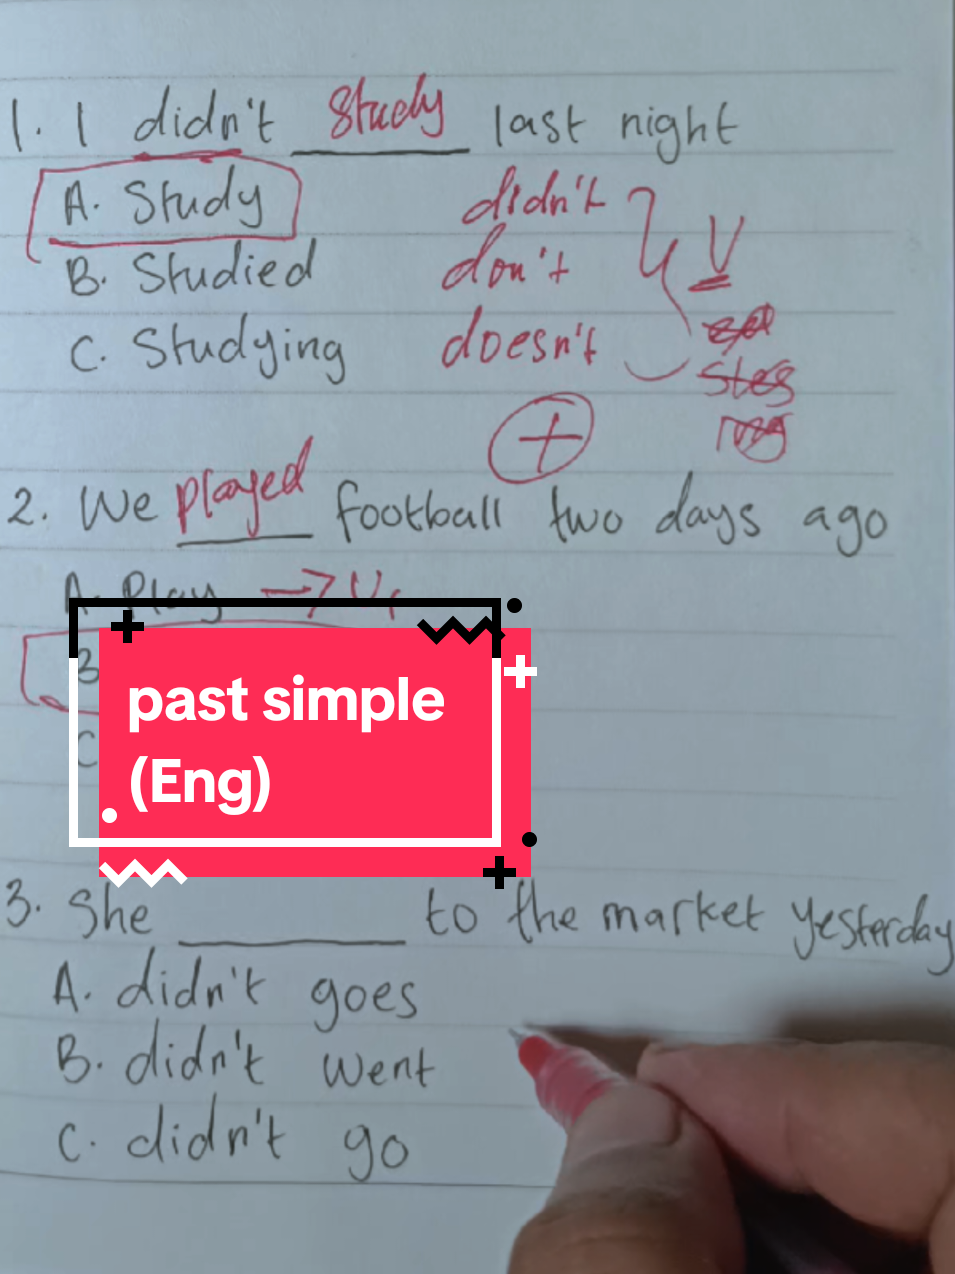 1. I didn't study last night
A. Study
didn't
V
B. Studied
don't
C. Studying
doesn't
+
2. We played football two days ago
A. Play → V1
B
C
past simple
(Eng)
3. She ________ to the market yesterday
A. didn't goes
B. didn't went
C. didn't go